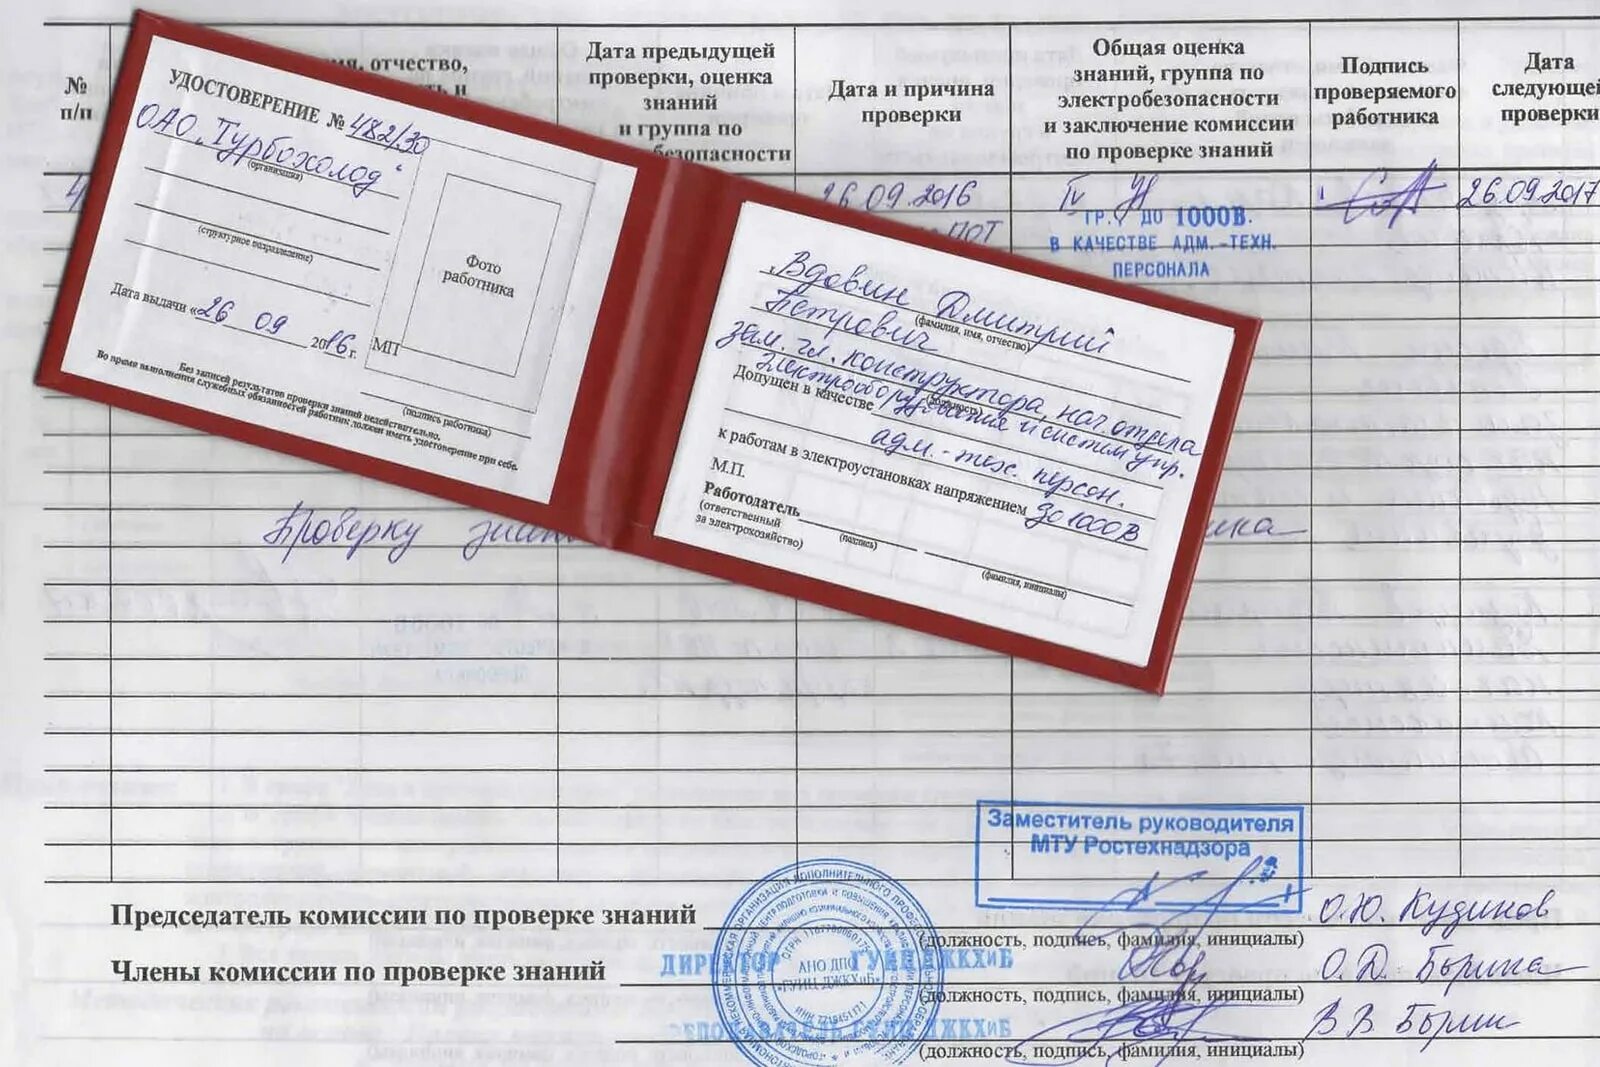 №
п/п
отчество,
Дата предыдущей
проверки, оценка
знаний
и группа по
безопасности
Дата и причина
проверки
Общая оценка
знаний, группа по
электробезопасности
и заключение комиссии
по проверке знаний
Подпись
проверяемого
работника
Дата
следующей
проверки
26.09.2016
ПОТ
IV
ГР. ДО 1000В.
В КАЧЕСТВЕ АДМ.-ТЕХН.
ПЕРСОНАЛА
26.09.2017
УДОСТОВЕРЕНИЕ № 482/30
ОАО „Турбохолод“
(организация)
(структурное подразделение)
Дата выдачи «26 09 2016 г.
МП
Фото
работника
(подпись работника)
Без записей результатов проверки знаний недействительно.
Во время выполнения служебных обязанностей работник должен иметь удостоверение при себе.
Вдовин Дмитрий
(фамилия, имя, отчество)
Петрович
зам. гл. конструктора, нач. отдела
(должность)
Электрооборудования и систем упр.
Допущен в качестве
адм. - тех. персон.
к работам в электроустановках напряжением до 1000 В
М.П.
Работодатель
(ответственный
за электрохозяйство)
(подпись)
(фамилия, инициалы)
Проверку
Заместитель руководителя
МТУ Ростехнадзора
Председатель комиссии по проверке знаний
О.Ю. Кудинов
(должность, подпись, фамилия, инициалы)
Члены комиссии по проверке знаний
ДИРЕКТОР ГУИЦ ДЖКХиБ
(должность, подпись, фамилия, инициалы)
(должность, подпись, фамилия, инициалы)
АНО ДПО
«ГУИЦ ДЖКХиБ»